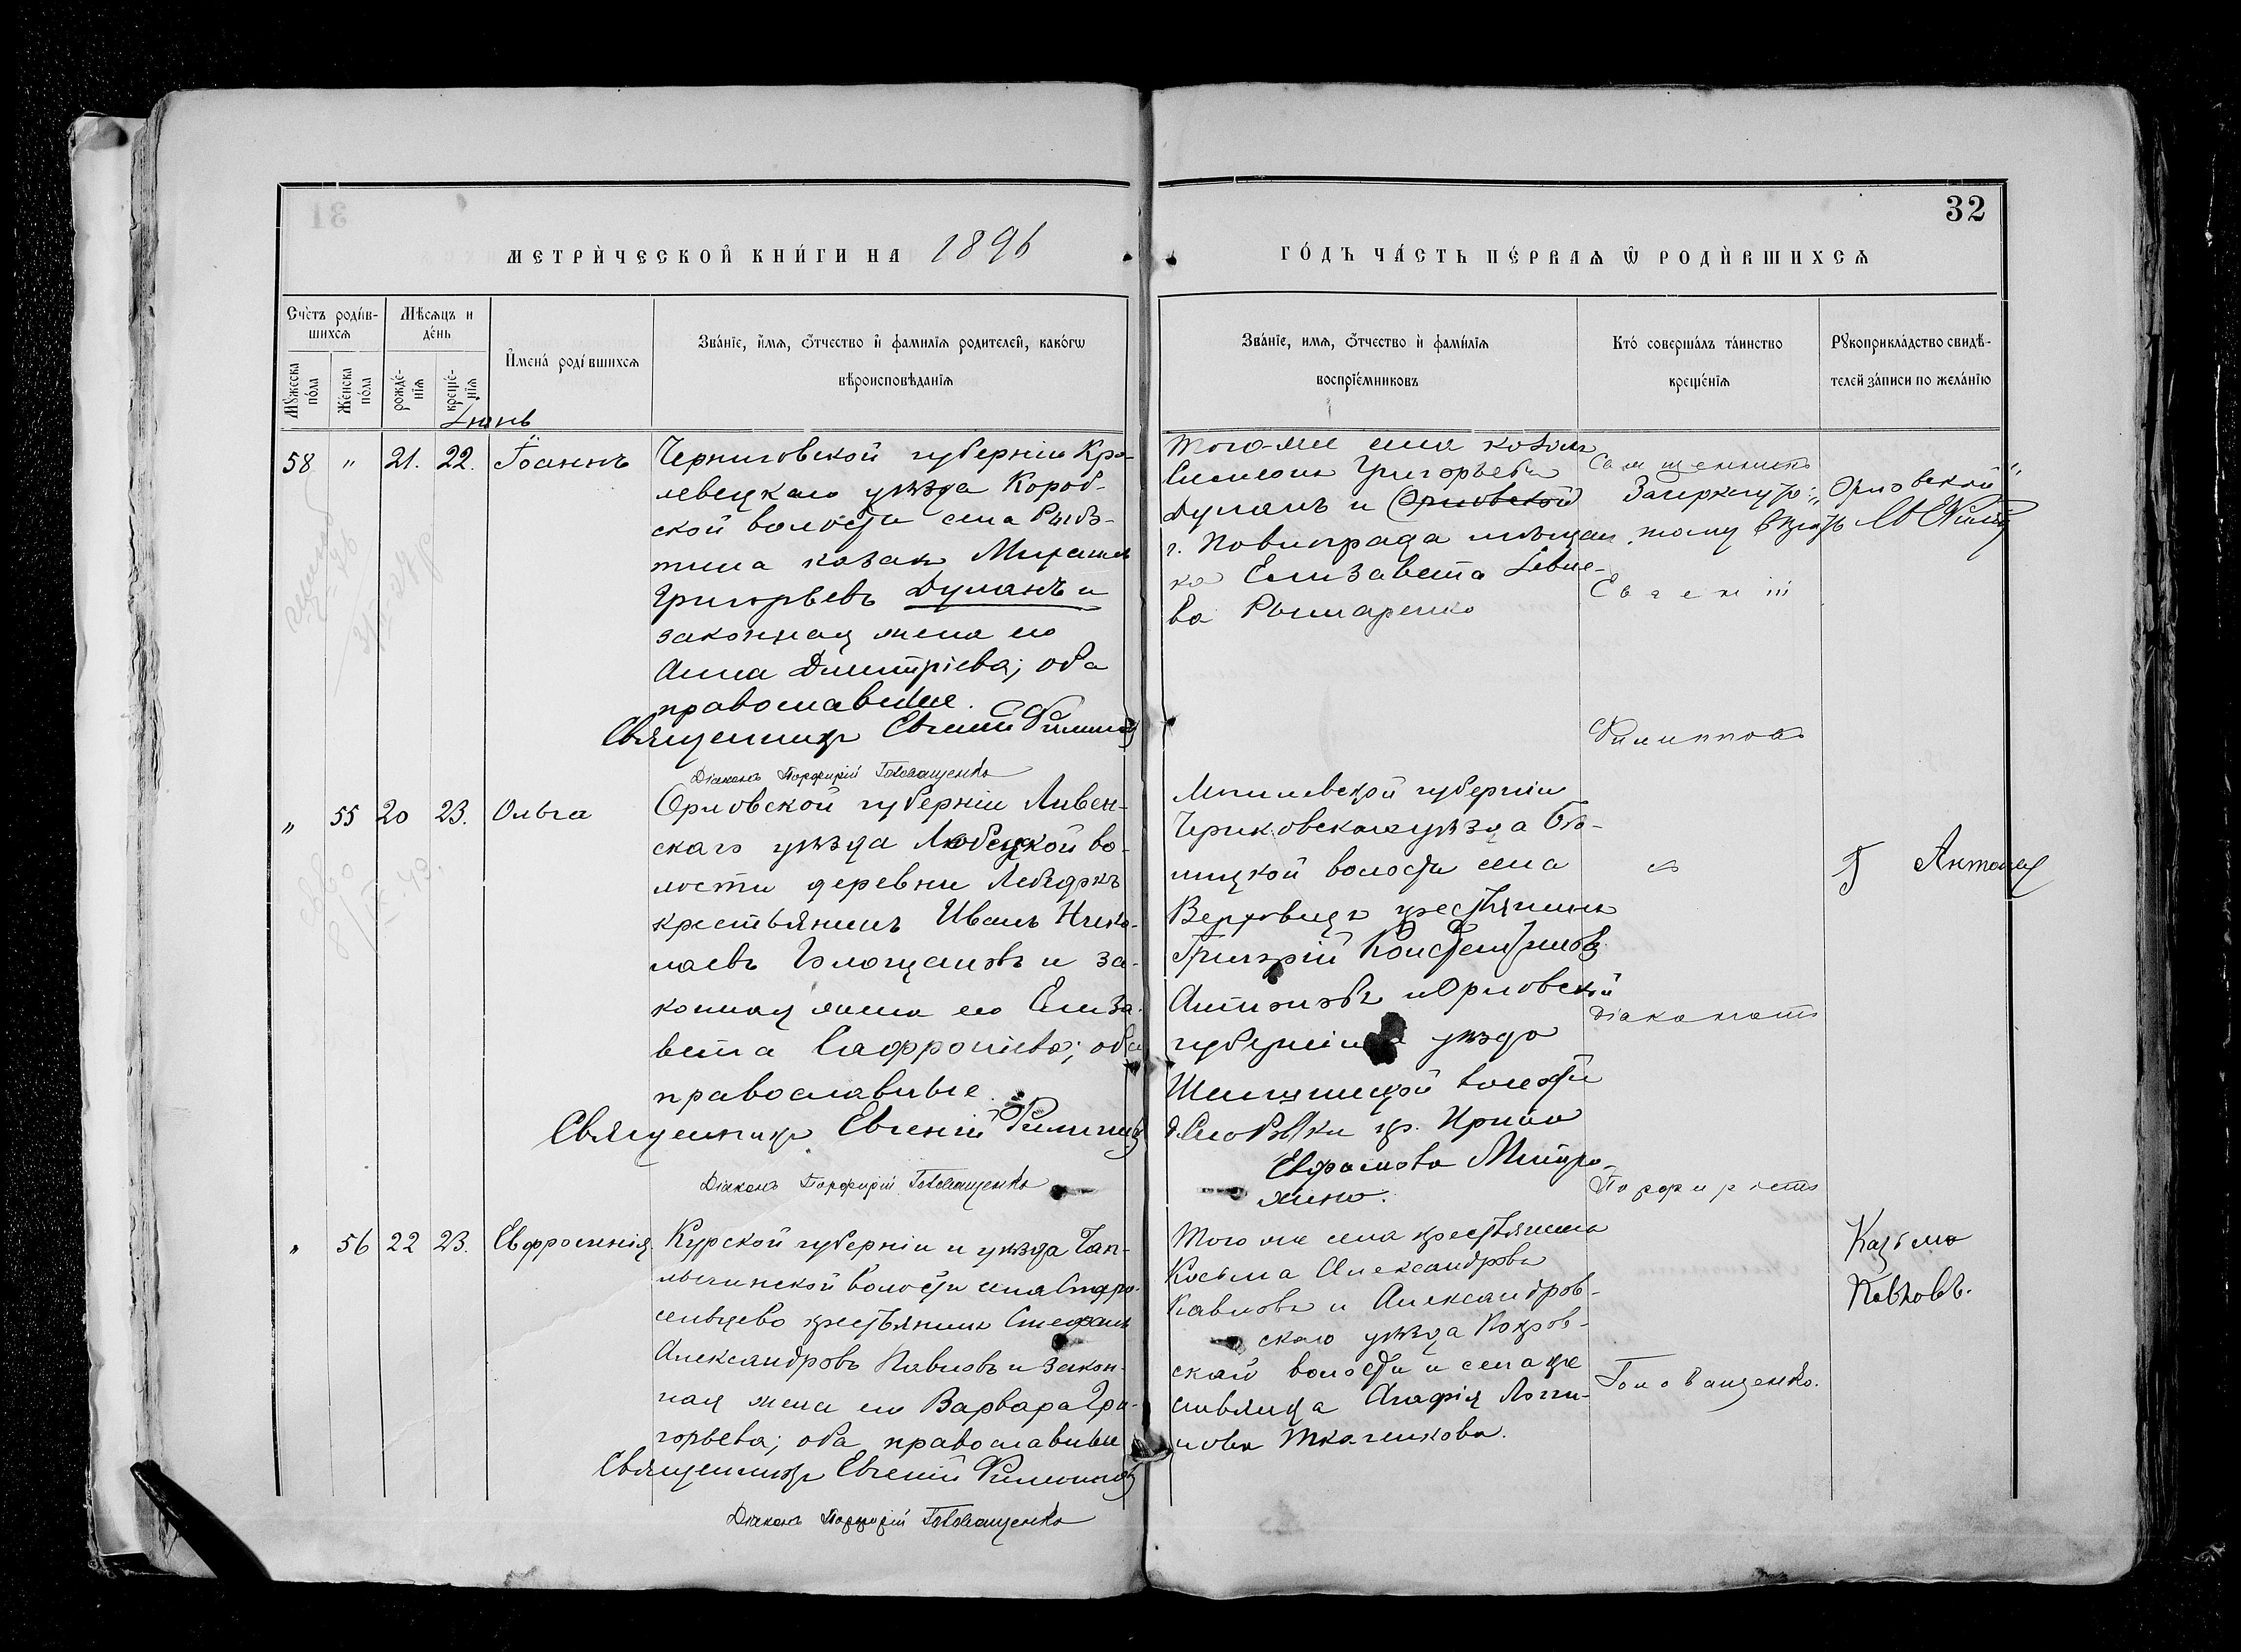 32
МЕТРИ́ЧЕСКОЙ КНИ́ГИ НА 1896
ГО́ДЪ ЧА́СТЬ ПЕ́РВАѦ Ѡ РОДИ́ВШИХСѦ
Сче́тъ роди́в-
шихсѧ
Мѣ́сѧцъ и
де́нь
Мꙋжеска
по́ла
Же́нска
по́ла
рожде́-
нїѧ
креще́-
нїѧ
И҆мена́ роди́вшихсѧ
Зва́нїе, и҆́мѧ, ѻ҆́тчество и҆ фами́лїѧ роди́телей, како́гѡ
вѣроисповѣ́данїѧ
Зва́нїе, имѧ, ѻ҆́тчество и҆ фами́лїѧ
воспрїе́мниковъ
Кто́ соверша́лъ та́инство
креще́нїѧ
Рꙋкоприкла́дство свидѣ́-
телей за́писи по жела́нїю
Іюнь
58 " 21. 22. Іоаннъ
Черниговской губерніи Кро-
левецкаго уѣзда Короб-
ской волости села Рыбо-
тина козакъ Михаилъ
Григорьевъ Думанъ и
законная жена его
Анна Димитріева; оба
православные.
Священникъ Евгеній Филипповъ
Діаконъ Порфирій Головащенко
того-же села козакъ
Симеонъ Григорьевъ
Думанъ и Орловской
г. Новограда мѣщан-
ка Елизавета
ва Рымаренко
Священникъ
Евгеній
Филипповъ
Зачеркнуто: "Орловской"
" 55 20 23. Ольга
Орловской губерніи Ливен-
скаго уѣзда Любецкой во-
лости деревни
крестьянинъ Иванъ Нико-
лаевъ и за-
конная жена его Елиза-
вета Сафроніева; оба
православные.
Священникъ Евгеній Филипповъ
Діаконъ Порфирій Головащенко
Могилевской губерніи
Чериковскаго уѣзда
волости села
крестьянинъ
Григорій Константиновъ
Антоновъ и Орловской
губерніи уѣзда
волости
кр. Ирина
Митро-
хина.
Діаконъ
Порфирій
Головащенко.
Г Антонов
" 56 22 23. Евфросинія
Курской губерніи и уѣзда
волости села Старо-
сельцево крестьянинъ Стефанъ
Александровъ Павловъ и закон-
ная жена его Варвара Гри-
горьева; оба православные
Священникъ Евгеній Филипповъ
Діаконъ Порфирій Головащенко
Того же села крестьянинъ
Косьма Александровъ
Павловъ и Александров-
скаго уѣзда Покров-
ской волости и села
Агафія Логги-
нова Ткаченкова.
Казьма
Павловъ.